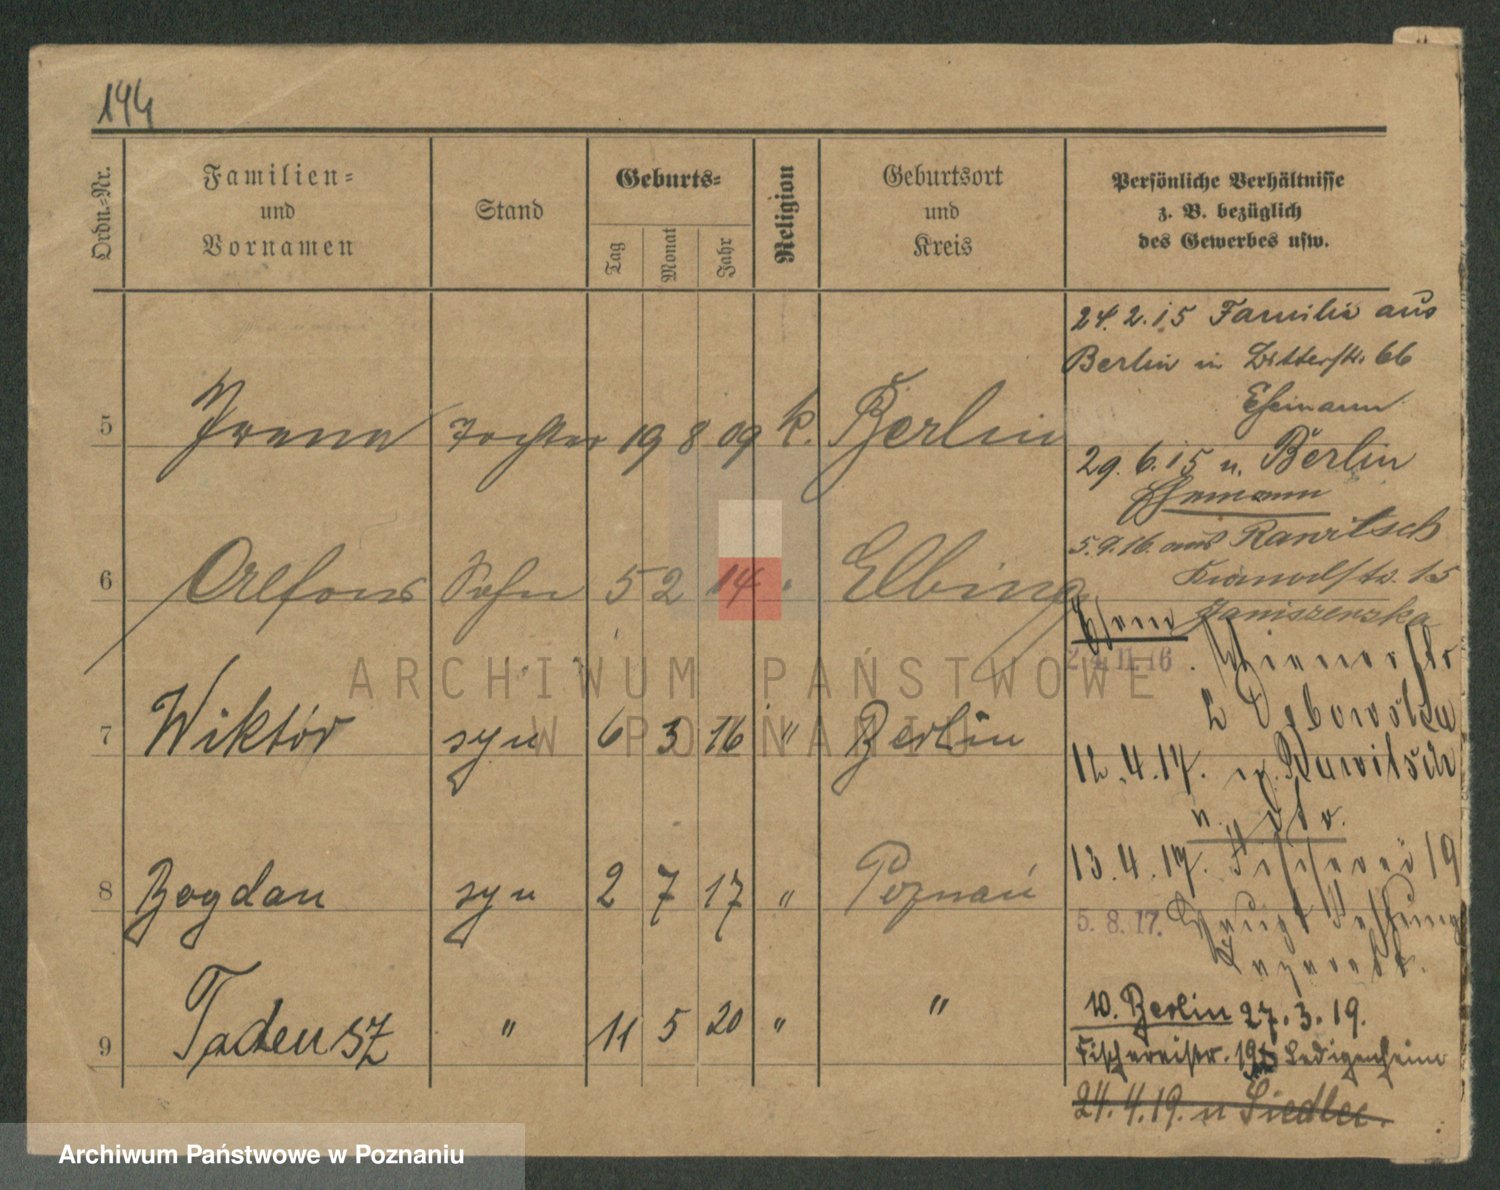 144
Ordn.-Nr.
Familien-
und
Vornamen
Stand
Geburts-
Tag
Monat
Jahr
Religion
Geburtsort
und
Kreis
Persönliche Verhältnisse
z. B. bezüglich
des Gewerbes usw.
5 Irene Tochter 19 8 09 k. Berlin
6 Alfons Sohn 5 2 14 Elbing
7 Wiktór syn 6 3 16 " Berlin
8 Bogdan syn 2 7 17 " Poznań
9 Tadeusz " 11 5 20 " "
24.2.15 Familie aus
Berlin in 66
Ehemann
29.6.15 n. Berlin
Ehemann
5.9.16. aus Rawitsch
15
Janiszewska
Ehem
24.11.16
12.4.17. n. Rawitsch
13.4.17. 19
5.8.17. Haupt Festung
Lazarett.
w. Berlin 27.3.19.
Fischereistr. Ledigenheim
24.4.19. n Siedlec.
ARCHIWUM PAŃSTWOWE
W POZNANIU
Archiwum Państwowe w Poznaniu